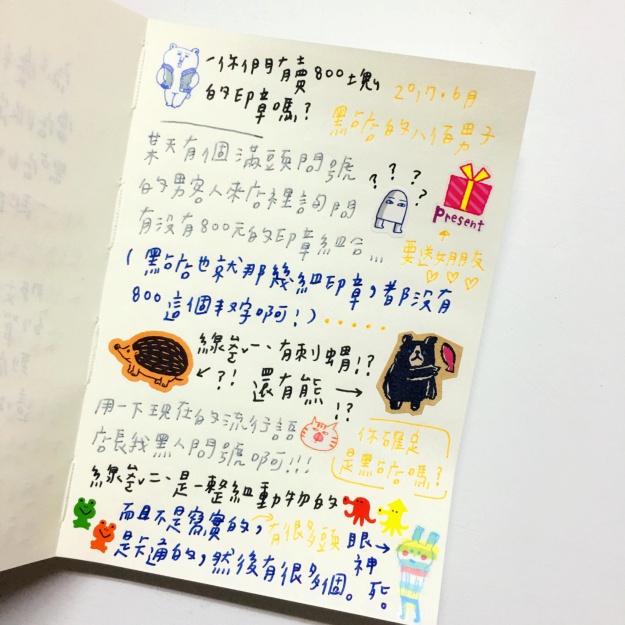 「你們有賣800塊
的印章嗎?
2017.6月
黑占店的八佰男子
某天有個滿頭問號
的男客人來店裡詢問
有沒有800元的印章組合...
? ? ? ?
Present
↑
要送女朋友
♡ ♡ ♡
(黑占店也就那幾組印章,都沒有
800這個數字啊!).....
線索一、有刺蝟!?
↙?! 還有熊 →
!?
用一下現在的流行語
店長我黑人問號啊!!!
你確定
是黑占店嗎?
線索二、是一整組動物的
而且不是寫實的, 有很多頭 眼→
是卡通的,然後有很多個。 神
死。